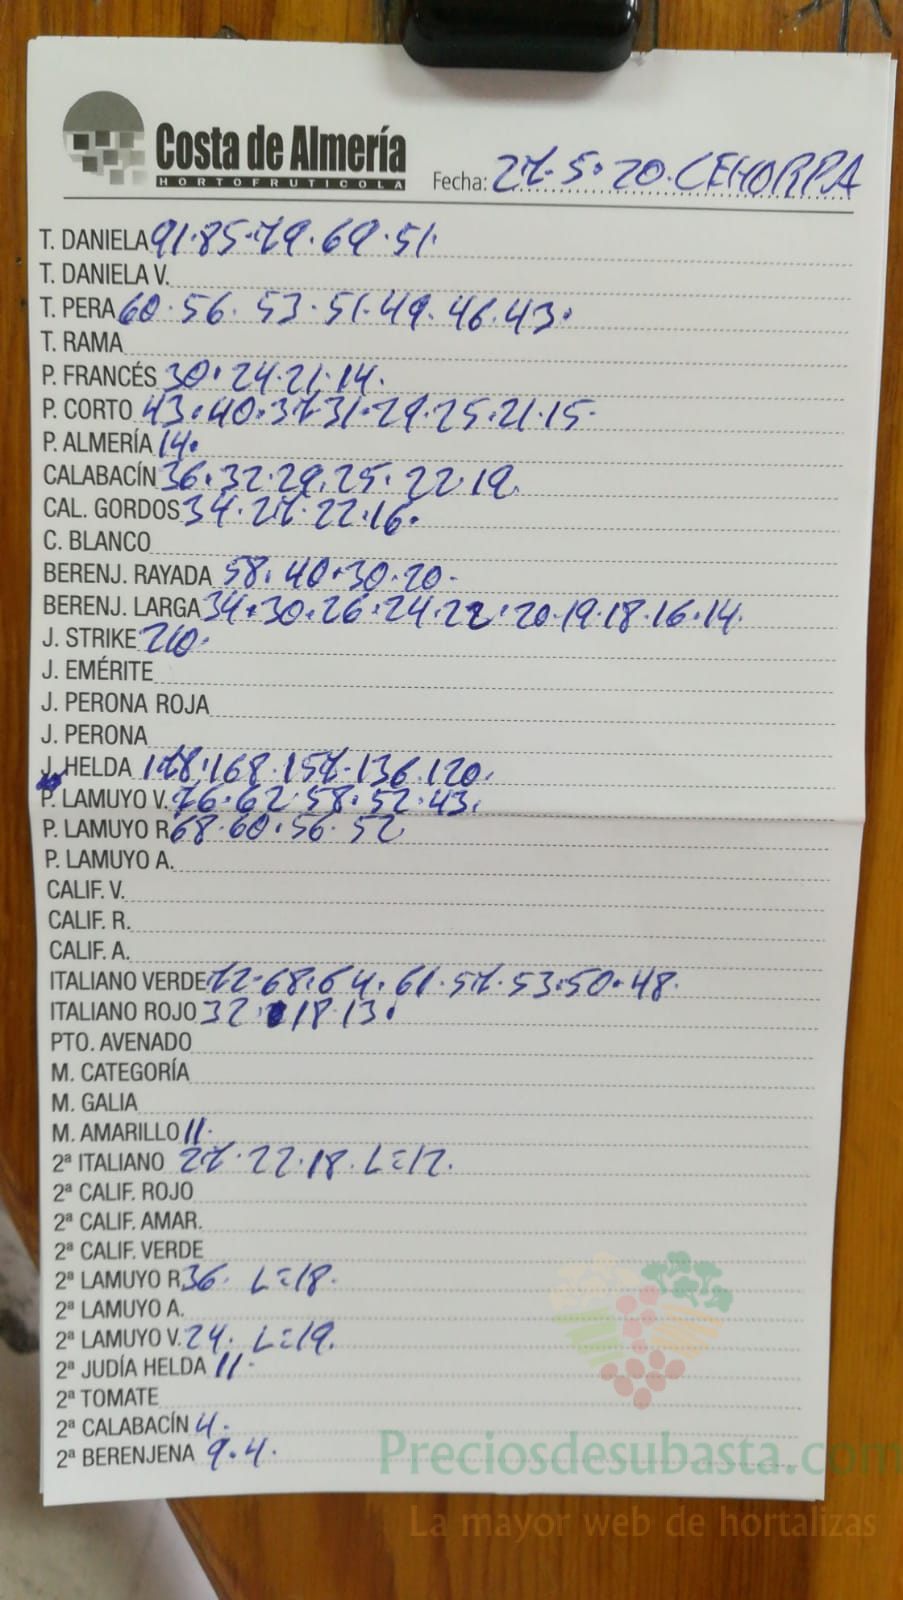 Costa de Almería
HORTOFRUTICOLA
Fecha: 27.5.20. CEHORPA
T. DANIELA 91.85.79.69.51.
T. DANIELA V.
T. PERA 60.56.53.51.49.46.43.
T. RAMA
P. FRANCÉS 30.24.21.14.
P. CORTO 43.40.37.31.29.25.21.15.
P. ALMERÍA 14.
CALABACÍN 36.32.29.25.22.19.
CAL. GORDOS 34.27.22.16.
C. BLANCO
BERENJ. RAYADA 58.40.30.20.
BERENJ. LARGA 34.30.26.24.22.20.19.18.16.14.
J. STRIKE 210.
J. EMÉRITE
J. PERONA ROJA
J. PERONA
J. HELDA 178.168.157.136.120.
P. LAMUYO V. 76.62.58.52.43.
P. LAMUYO R. 68.60.56.52
P. LAMUYO A.
CALIF. V.
CALIF. R.
CALIF. A.
ITALIANO VERDE 72.68.64.61.57.53.50.48.
ITALIANO ROJO 32. 18.13.
PTO. AVENADO
M. CATEGORÍA
M. GALIA
M. AMARILLO 11.
2ª ITALIANO 27.22.18. L=12.
2ª CALIF. ROJO
2ª CALIF. AMAR.
2ª CALIF. VERDE
2ª LAMUYO R. 36. L=18.
2ª LAMUYO A.
2ª LAMUYO V. 24. L=19.
2ª JUDÍA HELDA 11.
2ª TOMATE
2ª CALABACÍN 4.
2ª BERENJENA 9.4.
Preciosdesubasta.com
La mayor web de hortalizas